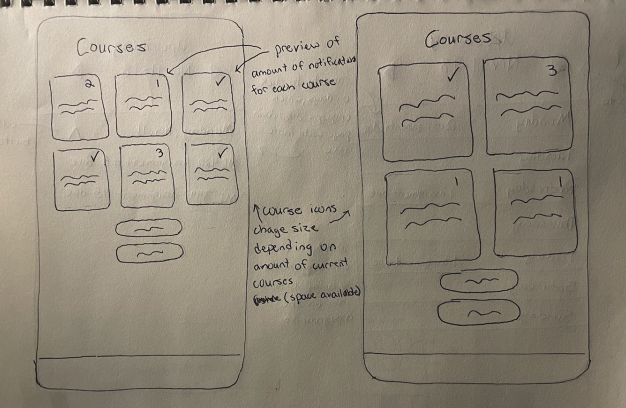 Courses
2
1
✓
✓
3
✓
preview of
amount of notifications
for each course
course icons
chage size
depending on
amount of current
courses
(space available)
Courses
✓
3
1
1